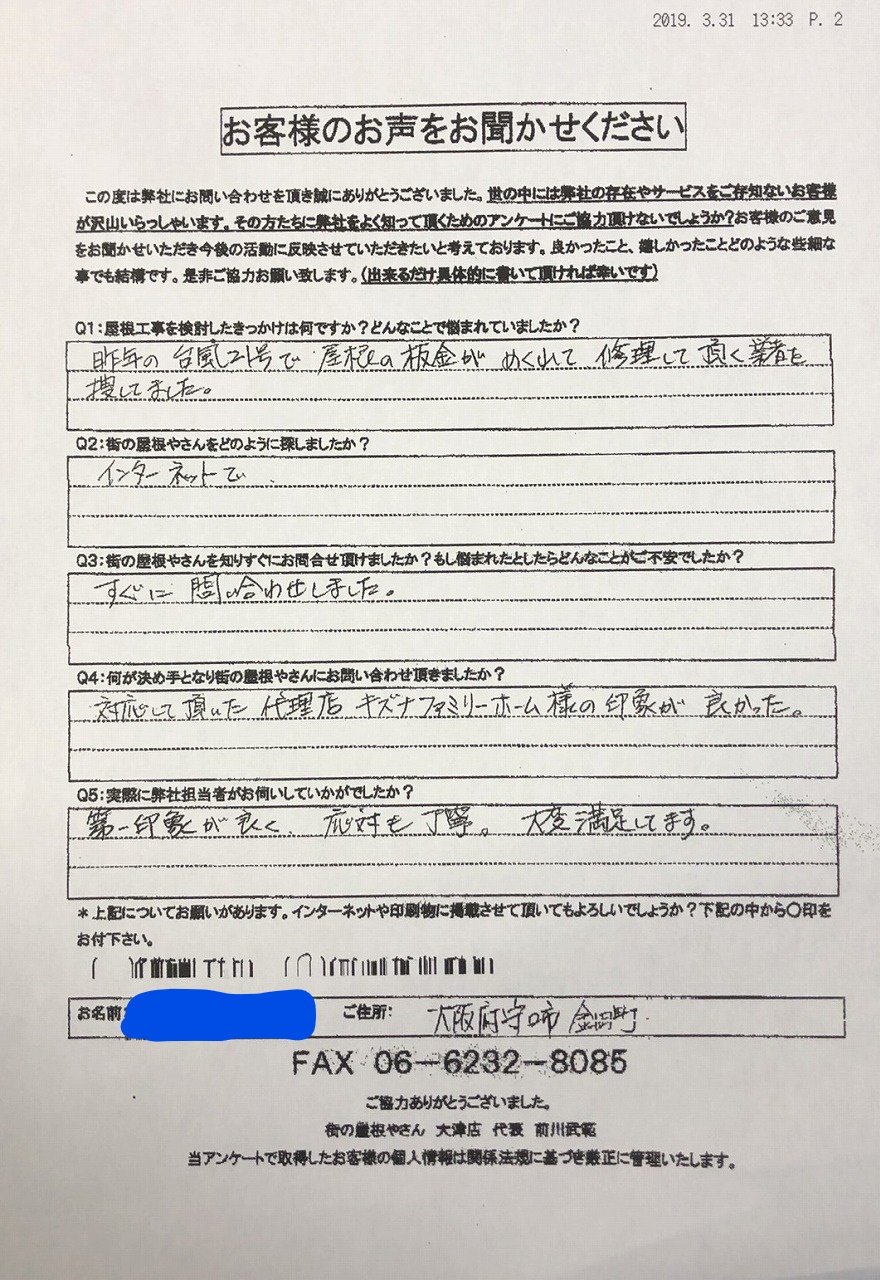 2019. 3.31 13:33 P. 2
お客様のお声をお聞かせください
この度は弊社にお問い合わせを頂き誠にありがとうございました。世の中には弊社の存在やサービスをご存知ないお客様
が沢山いらっしゃいます。その方たちに弊社をよく知って頂くためのアンケートにご協力頂けないでしょうか?お客様のご意見
をお聞かせいただき今後の活動に反映させていただきたいと考えております。良かったこと、嬉しかったことどのような些細な
事でも結構です。是非ご協力お願い致します。(出来るだけ具体的に書いて頂ければ幸いです)
Q1:屋根工事を検討したきっかけは何ですか?どんなことで悩まれていましたか?
昨年の台風21号で屋根の板金がめくれて修理して頂く業者を
捜してました。
Q2:街の屋根やさんをどのように探しましたか?
インターネットで
Q3:街の屋根やさんを知りすぐにお問合せ頂けましたか?もし悩まれたとしたらどんなことがご不安でしたか?
すぐに問い合わせしました。
Q4:何が決め手となり街の屋根やさんにお問い合わせ頂きましたか?
対応して頂いた代理店キズナファミリーホーム様の印象が良かった。
Q5:実際に弊社担当者がお伺いしていかがでしたか?
第一印象が良く、応対も丁寧。大変満足してます。
*上記についてお願いがあります。インターネットや印刷物に掲載させて頂いてもよろしいでしょうか?下記の中から〇印を
お付下さい。
お名前: ご住所: 大阪府守口市金田町
FAX 06-6232-8085
ご協力ありがとうございました。
街の屋根やさん 大津店 代表 前川武範
当アンケートで取得したお客様の個人情報は関係法規に基づき厳正に管理いたします。